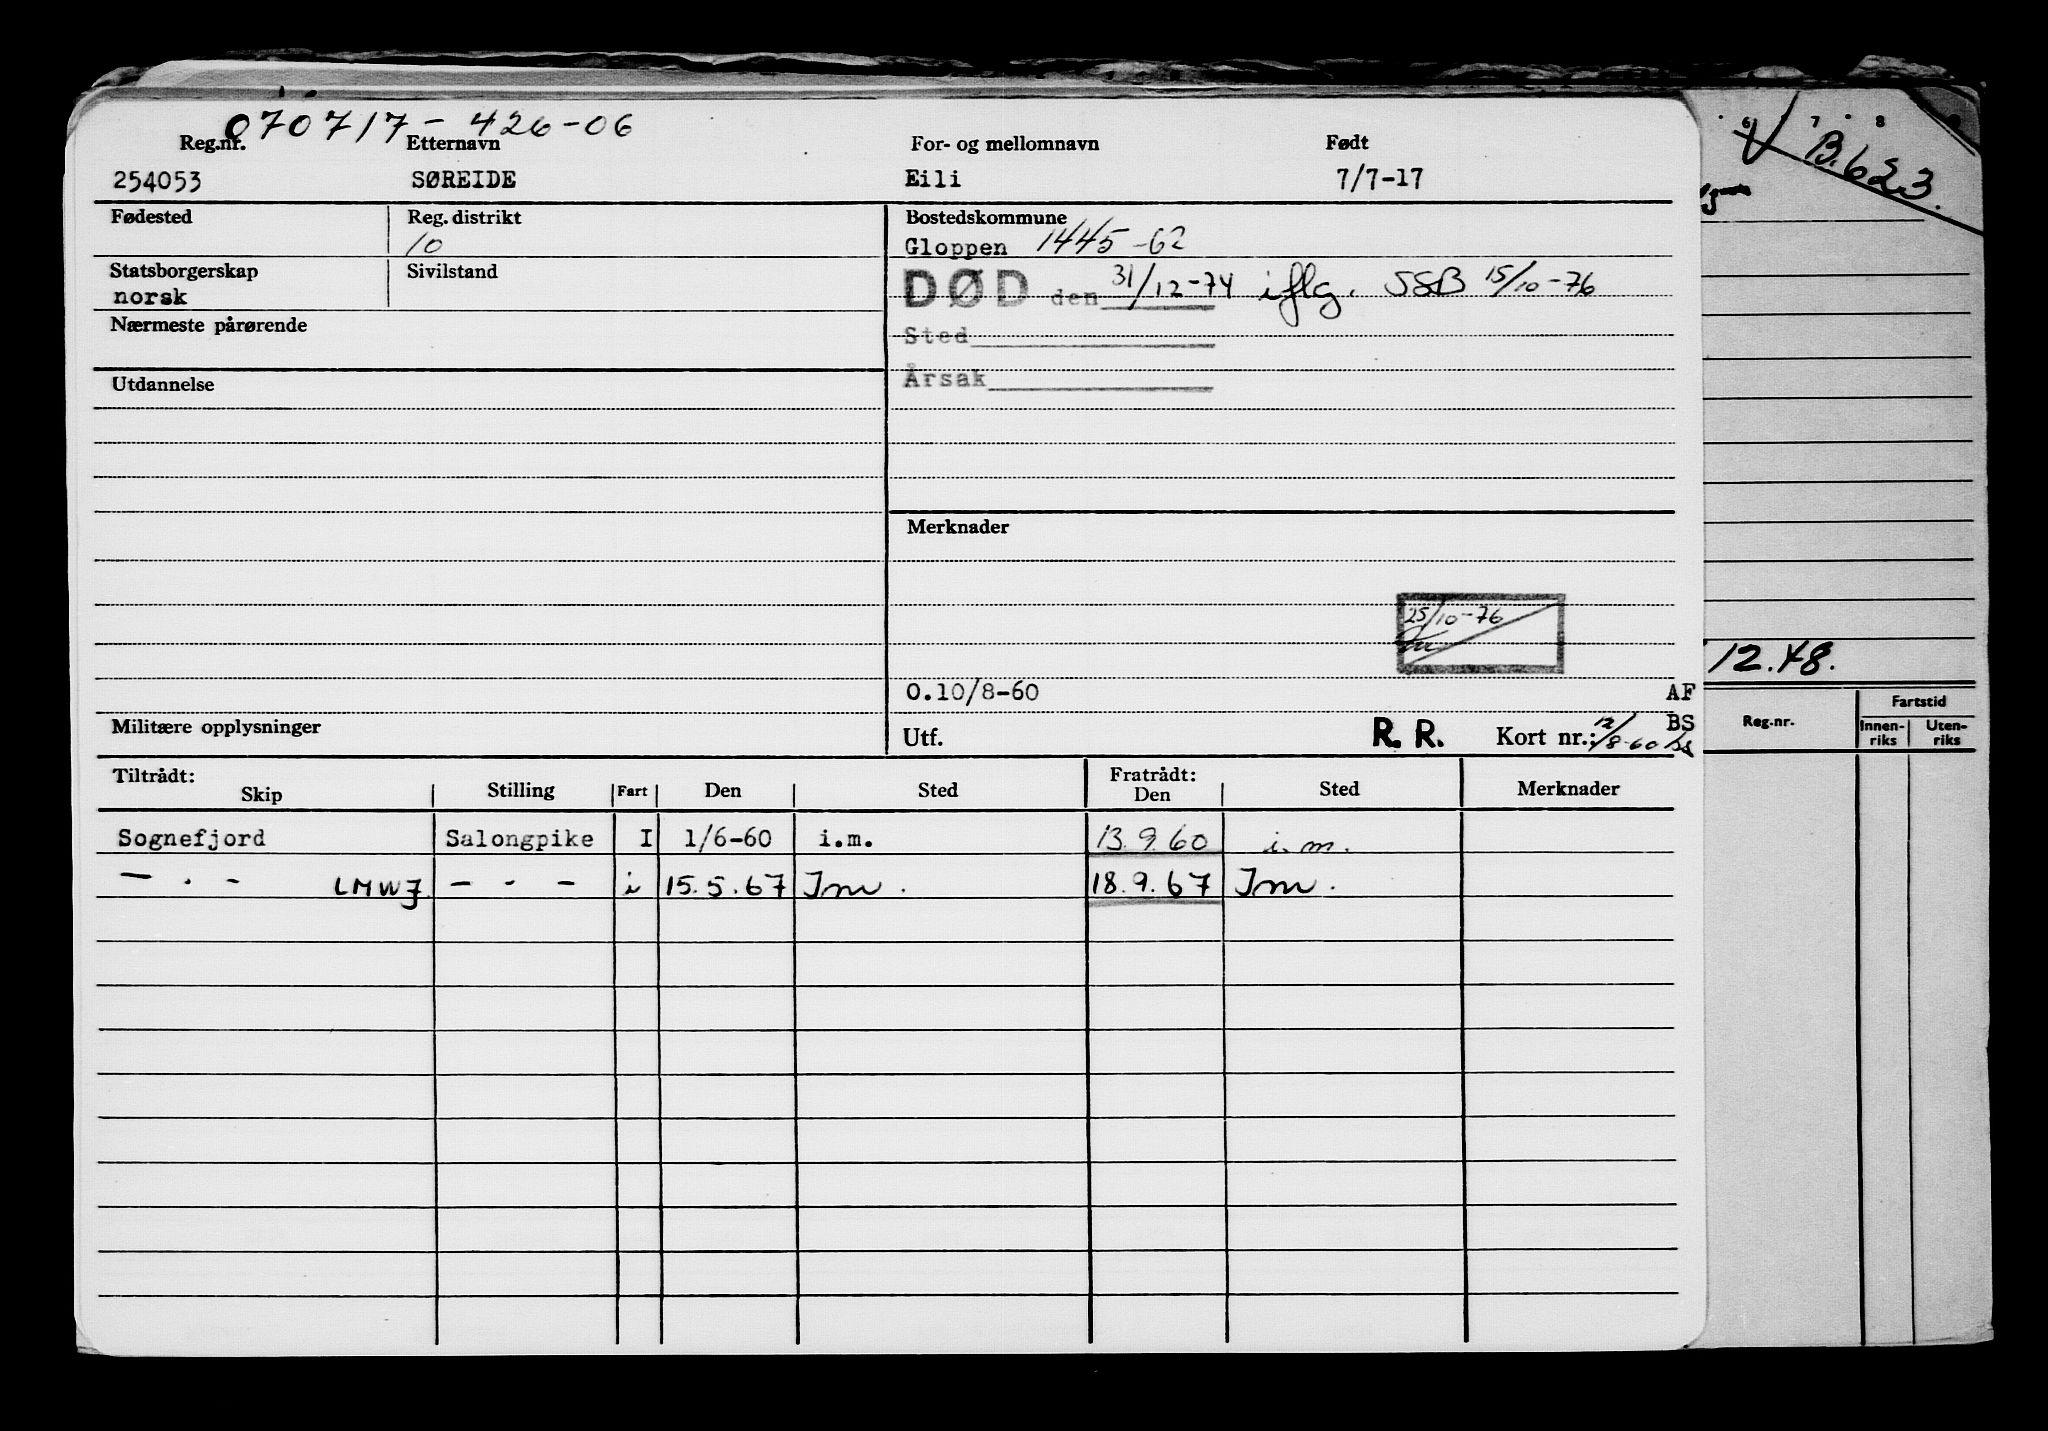 070717-426-06
Reg.nr. Etternavn For- og mellomnavn Født
254053 SØREIDE Eili 7/7-17
Fødested Reg. distrikt Bostedskommune
10 Gloppen 1445-62
Statsborgerskap Sivilstand
norsk
DØD den 31/12-74 iflg. SSB 15/10-76
Nærmeste pårørende
Sted
Utdannelse
Årsak
Merknader
25/10-76
O.10/8-60 AF
Militære opplysninger
Utf. R. R. Kort nr.: 12/8-60 BS
Tiltrådt: Fratrådt:
Skip Stilling Fart Den Sted Den Sted Merknader
Sognefjord Salongpike I 1/6-60 i.m. 13.9.60 i.m.
— · - LMWJ — - — i 15.5.67 Im. 18.9.67 Im.
6 7 8
B.623.
12.48.
Reg.nr. Fartstid
Innen-riks Uten-riks